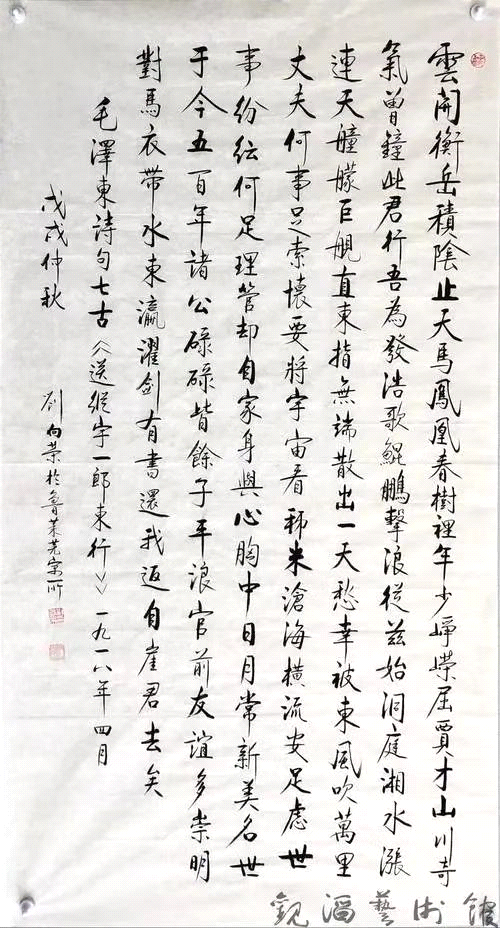 雲開衡岳積陰止天馬鳳凰春樹裡年少崢嶸屈賈才山川奇
氣曾鐘此君行吾為發浩歌鯤鵬擊浪從茲始洞庭湘水漲
連天艟艨巨艦直東指無端散出一天愁幸被東風吹萬里
丈夫何事足索懷要將宇宙看稊米滄海橫流安足慮世
事紛紜何足理管却自家身與心胸中日月常新美名世
于今五百年諸公碌碌皆餘子平浪宮前友誼多崇明
對馬衣帶水東瀛濯劍有書還我返自崖君去矣
毛澤東詩句七古《送縱宇一郎東行》一九一八年四月
戊戌仲秋
劉向榮於魯萊蕪
藝術館